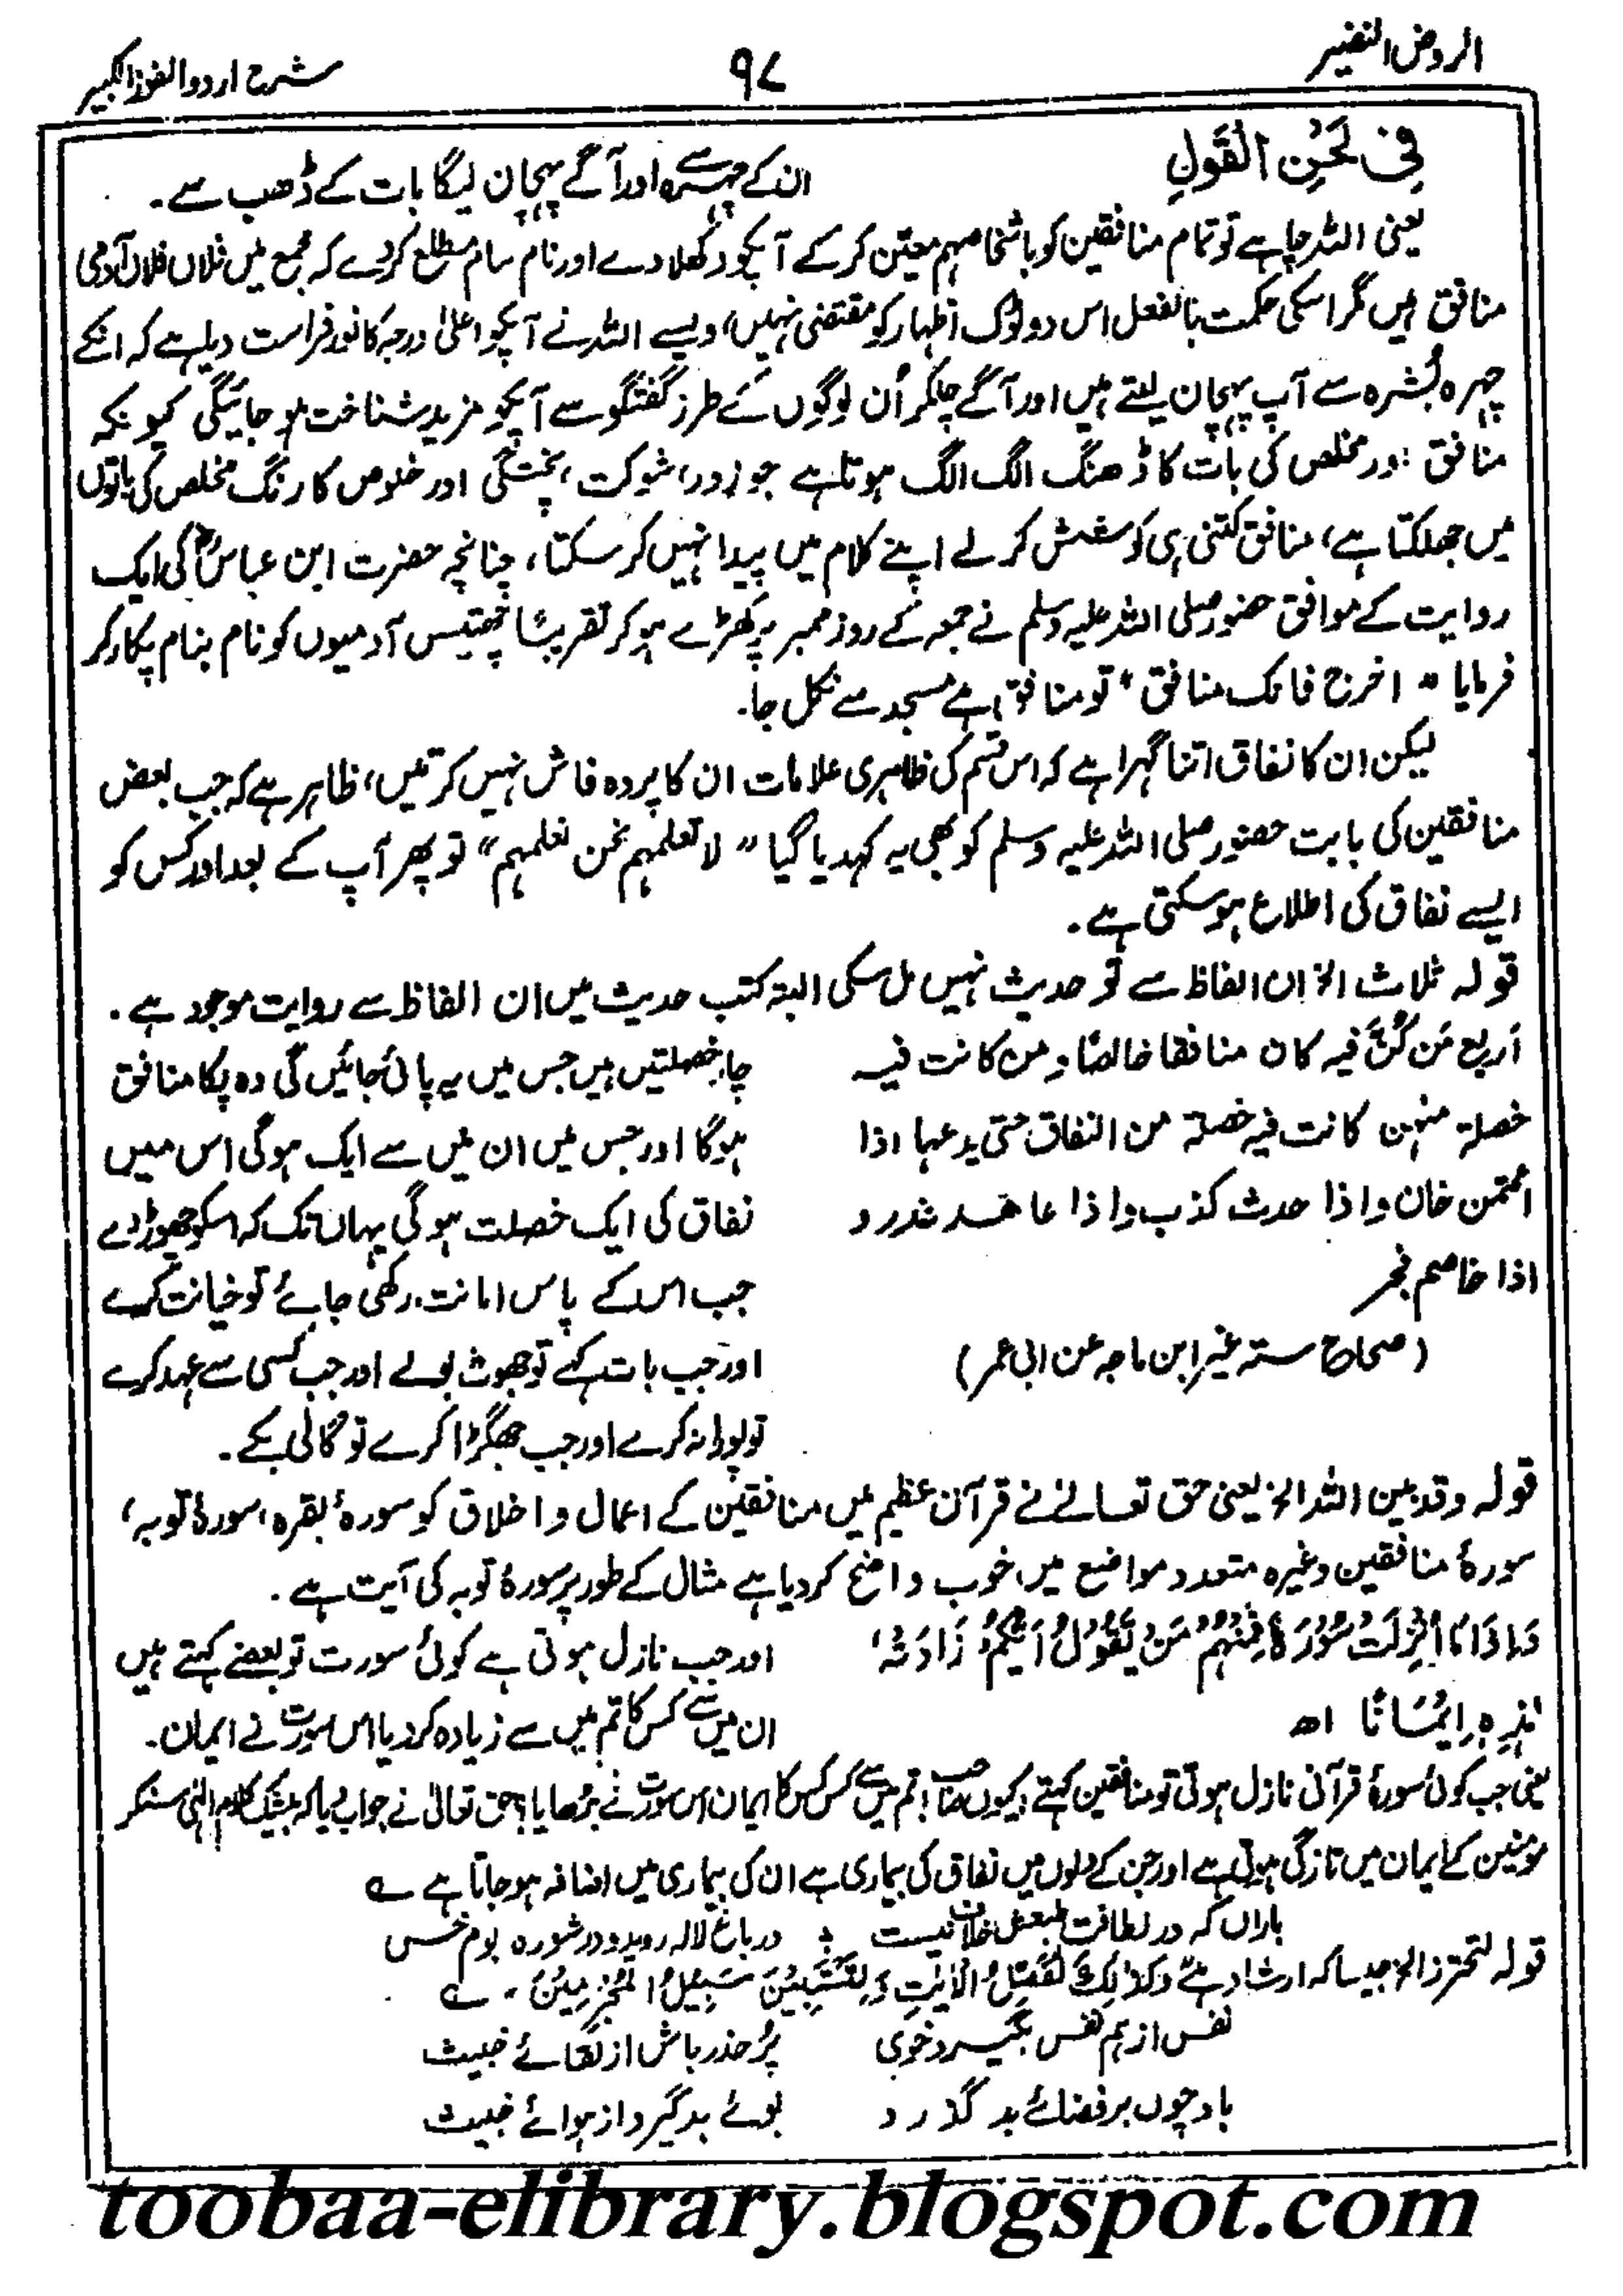 الروض النضیر ۹۷ شرح اردو الفوز الکبیر
فِیْ لَحْنِ الْقَوْلِ ان کے چہرے سے اور آگے پہچان لیگا بات کے ڈھب سے۔
یعنی اللہ چاہے تو تمام منافقین کو باشخاصہم معین کر کے آپکو دکھلا دے اور نام بنام مطلع کر دے کہ مجمع میں فلاں فلاں آدمی
منافق ہیں مگر اسکی حکمت بالفعل اس دو ٹوک اظہار کو مقتضی نہیں، ویسے اللہ نے آپکو اعلیٰ درجہ کا نور فراست دیا ہے کہ انکے
چہرہ بُشرہ سے آپ پہچان لیتے ہیں اور آگے چلکر اُن لوگوں کے طرز گفتگو سے آپکو مزید شناخت ہو جائیگی کیونکہ
منافق اور مخلص کی بات کا ڈھنگ الگ الگ ہوتا ہے جو زور، شوکت، پختگی اور خلوص کا رنگ مخلص کی باتوں
میں جھلکتا ہے، منافق کتنی ہی کوشش کر لے اپنے کلام میں پیدا نہیں کر سکتا، چنانچہ حضرت ابن عباسؓ کی ایک
روایت کے موافق حضور صلی اللہ علیہ وسلم نے جمعہ کے روز ممبر پر کھڑے ہو کر تقریبًا چھتیس آدمیوں کو نام بنام پکار کر
فرمایا "اخرج فانک منافق" تو منافق ہے مسجد سے نکل جا۔
لیکن ان کا نفاق اتنا گہرا ہے کہ اس قسم کی ظاہری علامات ان کا پردہ فاش نہیں کرتیں، ظاہر ہے کہ جب بعض
منافقین کی بابت حضور صلی اللہ علیہ وسلم کو بھی یہ کہدیا گیا "لا تعلمہم نحن نعلمہم" تو پھر آپ کے بعد اور کس کو
ایسے نفاق کی اطلاع ہو سکتی ہے۔
قولہ ثلاث الخ ان الفاظ سے تو حدیث نہیں مل سکی البتہ کتب حدیث میں ان الفاظ سے روایت موجود ہے۔
اربع مَن کُنَّ فیہ کان منافقا خالصًا ومن کانت فیہ چار خصلتیں ہیں جس میں یہ پائی جائیں گی وہ پکا منافق
خصلۃ منہن کانت فیہ خصلۃ من النفاق حتی یدعہا اذا ہوگا اور جس میں ان میں سے ایک ہوگی اس میں
ائتمن خان واذا حدث کذب واذا عاھد غدر و نفاق کی ایک خصلت ہوگی یہاں تک کہ اسکو چھوڑ دے
اذا خاصم فجر جب اس کے پاس امانت رکھی جائے تو خیانت کرے
(صحاح ستہ غیر ابن ماجہ عن ابی عمر) اور جب بات کہے تو جھوٹ بولے اور جب کسی سے عہد کرے
تو پورا نہ کرے اور جب جھگڑا کرے تو گالی بکے۔
قولہ وقد بین اللہ الخ یعنی حق تعالے نے قرآن عظیم میں منافقین کے اعمال و اخلاق کو سورۂ بقرہ، سورۂ توبہ،
سورۂ منافقین وغیرہ متعدد مواضع میں خوب واضح کر دیا ہے مثال کے طور پر سورۂ توبہ کی آیت ہے۔
وَاِذَا مَا اُنْزِلَتْ سُوْرَۃٌ فَمِنْہُمْ مَنْ یَّقُوْلُ اَیُّکُمْ زَادَتْہُ اور جب نازل ہوتی ہے کوئی سورت تو بعضے کہتے ہیں
ہٰذِہٖ اِیْمَانًا اھ ان میں سے کس کا تم میں سے زیادہ کر دیا اس سورت نے ایمان۔
یعنی جب کوئی سورۂ قرآنی نازل ہوتی تو منافقین کہتے کیوں صاحب! تم میں سے کس کس کا ایمان اس سورت نے بڑھایا؟ حق تعالیٰ نے جواب دیا کہ بیشک کلام الٰہی سنکر
مومنین کے ایمان میں تازگی ہوتی ہے اور جن کے دلوں میں نفاق کی بیماری ہے ان کی بیماری میں اضافہ ہو جاتا ہے ؎
باراں کہ در لطافت طبعش خلاف نیست ؞ در باغ لالہ روید و در شورہ بوم خس
قولہ لتحترز الخ جیسا کہ ارشاد ہے وَکَذٰلِکَ نُفَصِّلُ الْاٰیٰتِ وَلِتَسْتَبِیْنَ سَبِیْلُ الْمُجْرِمِیْنَ، ؎
نفس از ہم نفس بگیرد خوی پُر حذر باش از لقائے خبیث
باد چوں بر فضائے بد گذرد بوئے بد گیرد از ہوائے خبیث
toobaa-elibrary.blogspot.com